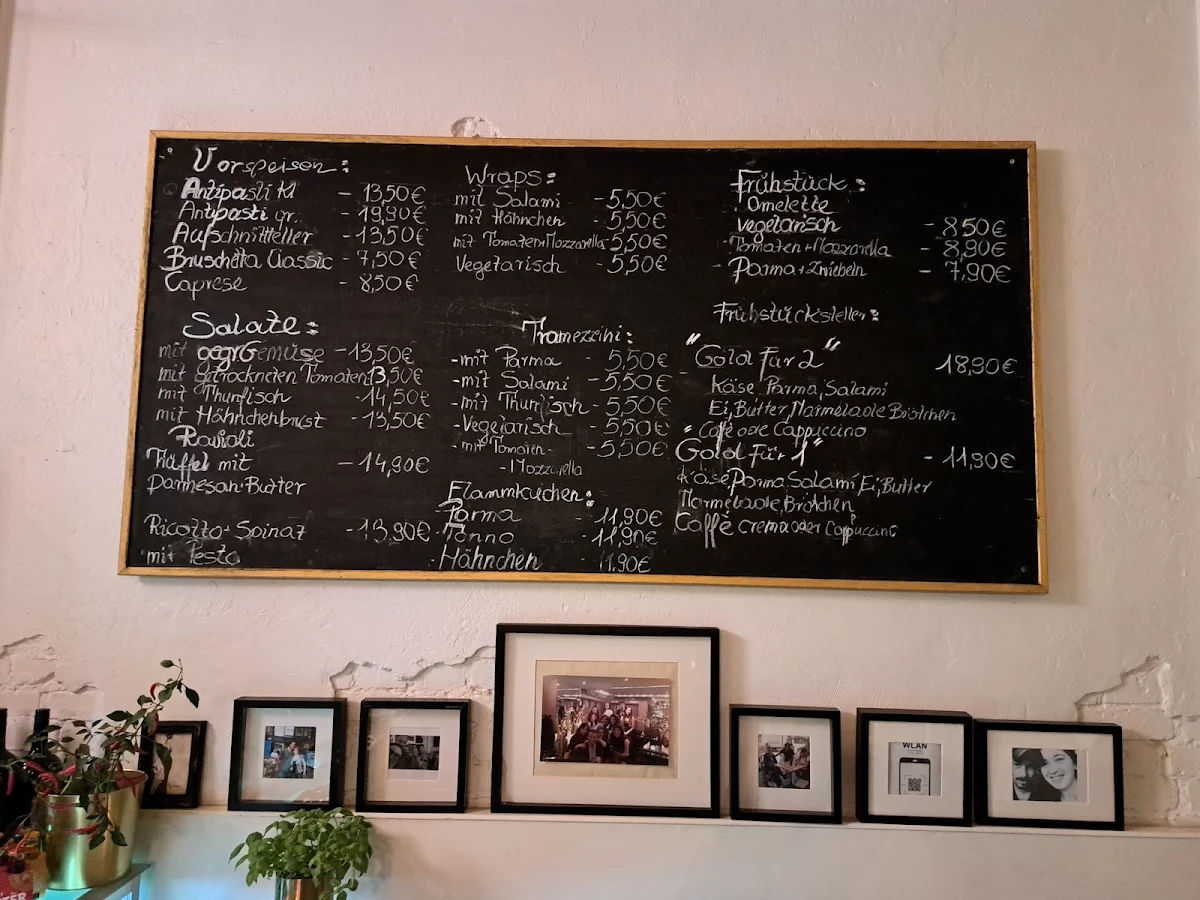 Vorspeisen:
Antipasti kl - 13,50€
Antipasti gr. - 19,90€
Aufschnittteller - 13,50€
Bruschetta Classic - 7,50€
Caprese - 8,50€
Salate:
mit gegr Gemüse - 13,50€
mit getrockneten Tomaten 13,50€
mit Thunfisch - 14,50€
mit Hähnchenbrust - 13,50€
Ravioli
Trüffel mit - 14,90€
Parmesan-Butter
Ricotta+Spinat - 13,90€
mit Pesto
Wraps:
mit Salami - 5,50€
mit Hähnchen - 5,50€
mit Tomaten+Mozzarella - 5,50€
Vegetarisch - 5,50€
Tramezzini:
-mit Parma - 5,50€
-mit Salami - 5,50€
-mit Thunfisch - 5,50€
-Vegetarisch - 5,50€
-mit Tomaten - 5,50€
-Mozzarella
Flammkuchen:
Parma - 11,90€
Tonno - 11,90€
Hähnchen - 11.90€
Frühstück:
Omelette
vegetarisch - 8,50€
Tomaten+Mozzarella - 8,90€
- Parma+Zwiebeln - 7,90€
Frühstücksteller:
"Gold Für 2" 18,90€
Käse, Parma, Salami
Ei, Butter, Marmelade Brötchen
Cafe ode Cappuccino
"Gold Für 1" - 11,90€
Käse, Parma, Salami, Ei, Butter
Marmelade, Brötchen
Caffè crema oder Cappuccino
WLAN